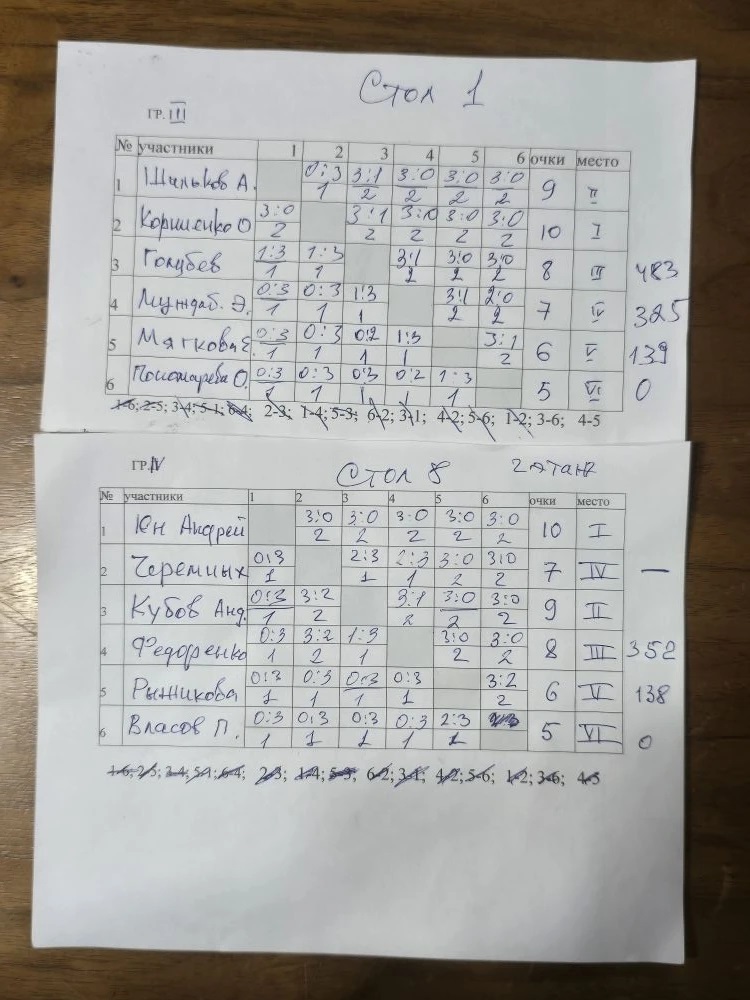 Стол 1
ГР. III
№ участники 1 2 3 4 5 6 очки место
1 Шильков А. 0:3 3:1 3:0 3:0 3:0 9 II
1 2 2 2 2
2 Корниенко О 3:0 3:1 3:0 3:0 3:0 10 I
2 2 2 2 2
3 Голубев 1:3 1:3 3:1 3:0 3:0 8 III 483
1 1 2 2 2
4 Мундаб. Э. 0:3 0:3 1:3 3:1 2:0 7 IV 325
1 1 1 2 2
5 Мягкова Е. 0:3 0:3 0:2 1:3 3:1 6 V 139
1 1 1 1 2
6 Пономарева О. 0:3 0:3 0:3 0:2 1:3 5 VI 0
1 1 1 1 1
1-6; 2-5; 3-4; 5-1; 6-4; 2-3; 1-4; 5-3; 6-2; 3-1; 4-2; 5-6; 1-2; 3-6; 4-5
ГР. IV Стол 8 2 этап
№ участники 1 2 3 4 5 6 очки место
1 Юн Андрей 3:0 3:0 3:0 3:0 3:0 10 I
2 2 2 2 2
2 Черемных 0:3 2:3 2:3 3:0 3:0 7 IV —
1 1 1 2 2
3 Кубов Анд. 0:3 3:2 3:1 3:0 3:0 9 II
1 2 2 2 2
4 Федоренко 0:3 3:2 1:3 3:0 3:0 8 III 352
1 2 1 2 2
5 Рыжикова 0:3 0:3 0:3 0:3 3:2 6 V 138
1 1 1 1 2
6 Власов П. 0:3 0:3 0:3 0:3 2:3 5 VI 0
1 1 1 1 1
1-6; 2-5; 3-4; 5-1; 6-4; 2-3; 1-4; 5-3; 6-2; 3-1; 4-2; 5-6; 1-2; 3-6; 4-5